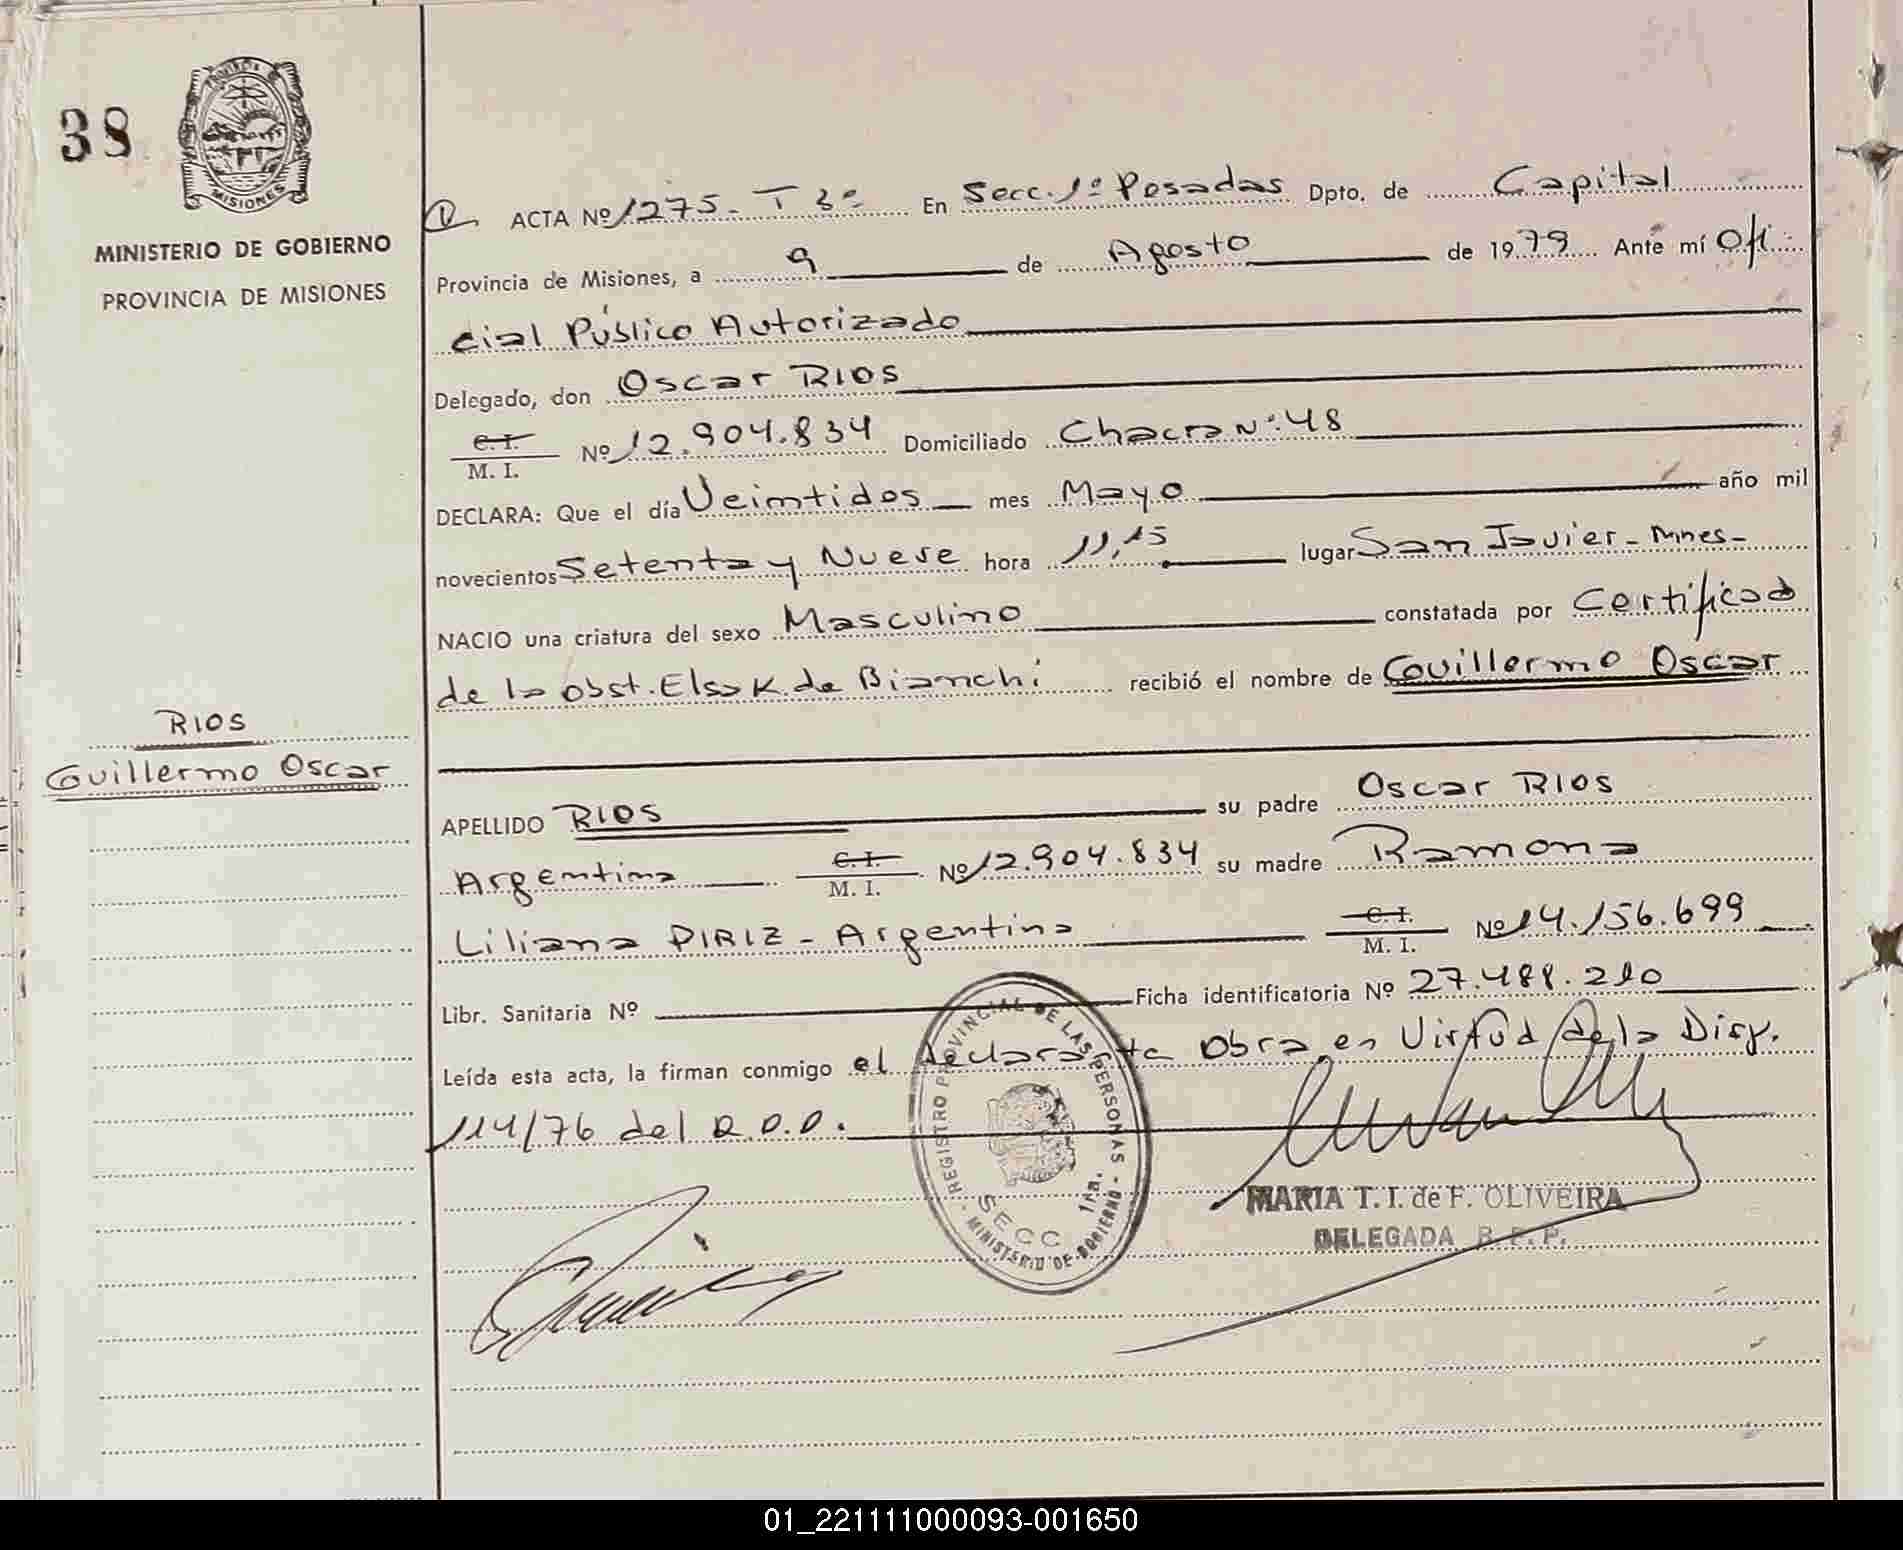 38
PROVINCIA DE
MISIONES
MINISTERIO DE GOBIERNO
PROVINCIA DE MISIONES
RIOS
Guillermo Oscar
ACTA Nº 1275- T 3º En Secc. 1º Posadas Dpto. de Capital
Provincia de Misiones, a 9 de Agosto de 1979 Ante mí Ofi
cial Público Autorizado
Delegado, don Oscar RIOS
C.I.
M. I. Nº 12.904.834 Domiciliado Chacra Nº 48
DECLARA: Que el día Veimtidos mes Mayo año mil
novecientos Setenta y Nueve hora 11,15 lugar San Javier - Mnes-
NACIO una criatura del sexo Masculino constatada por Certificad
de la obst. Elsa K. de Bianchi recibió el nombre de Guillermo Oscar
APELLIDO RIOS su padre Oscar RIOS
Argentina C.I.
M. I. Nº 12.904.834 su madre Ramona
Liliana PIRIZ - Argentina C.I.
M. I. Nº 14.156.699
Libr. Sanitaria Nº Ficha identificatoria Nº 27.488.210
Leída esta acta, la firman conmigo el declarante Obra en Virtud de la Disp.
114/76 del R.O.O.
REGISTRO PROVINCIAL DE LAS PERSONAS
SECC 1ra.
- MINISTERIO DE GOBIERNO -
MARIA T. I. de F. OLIVEIRA
DELEGADA R. P. P.
01_221111000093-001650